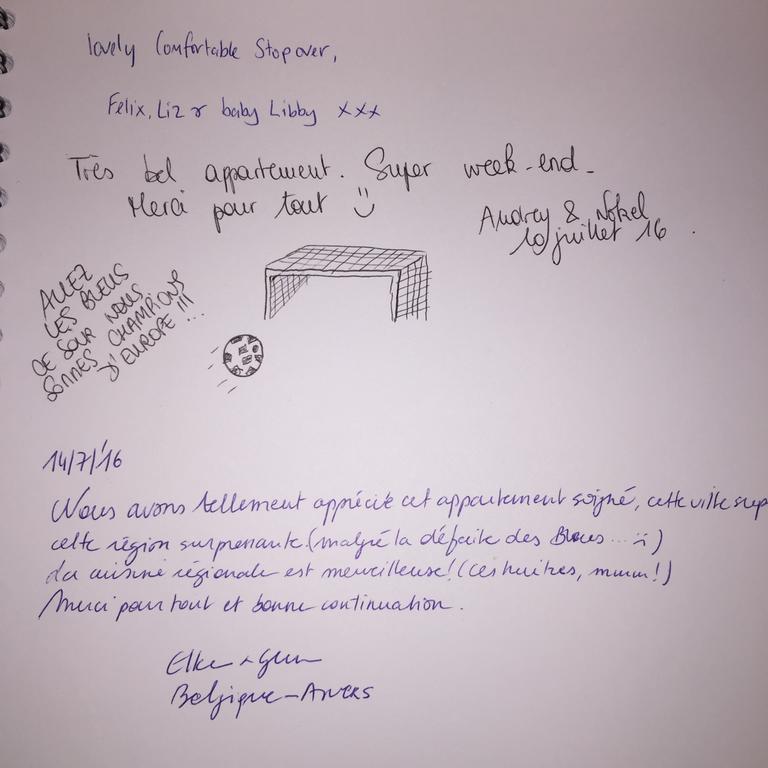 lovely Comfortable Stopover,
Felix, Liz & baby Libby xxx
Très bel appartement. Super week-end_
Merci pour tout
Audrey &
10 juillet 16.
ALLEZ
LES BLEUS
CE SOIR NOUS
SOMMES CHAMPIONS
D'EUROPE !!! ...
14/7/'16
Nous avons tellement apprécié cet appartement soigné, cette ville
cette région surprenante. (malgré la défaite des Bleus... :)
La cuisine régionale est merveilleuse! (ces huitres, mmm!)
Merci pour tout et bonne continuation.
Elke +
Belgique - Anvers